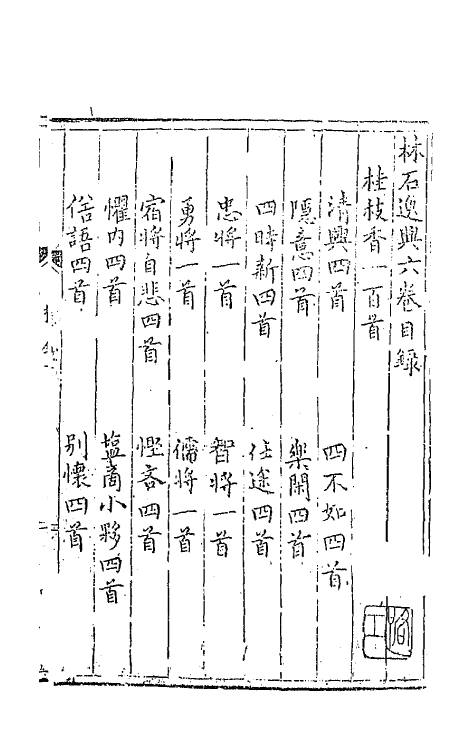 林石逸興六卷目錄
桂枝香一百首
清興四首　四不如四首
隱意四首　樂閑四首
四時新四首　仕途四首
忠將一首　智將一首
勇將一首　儒將一首
宿將自悲四首　慳吝四首
懼内四首　塩商小夥四首
俗語四首　别懷四首